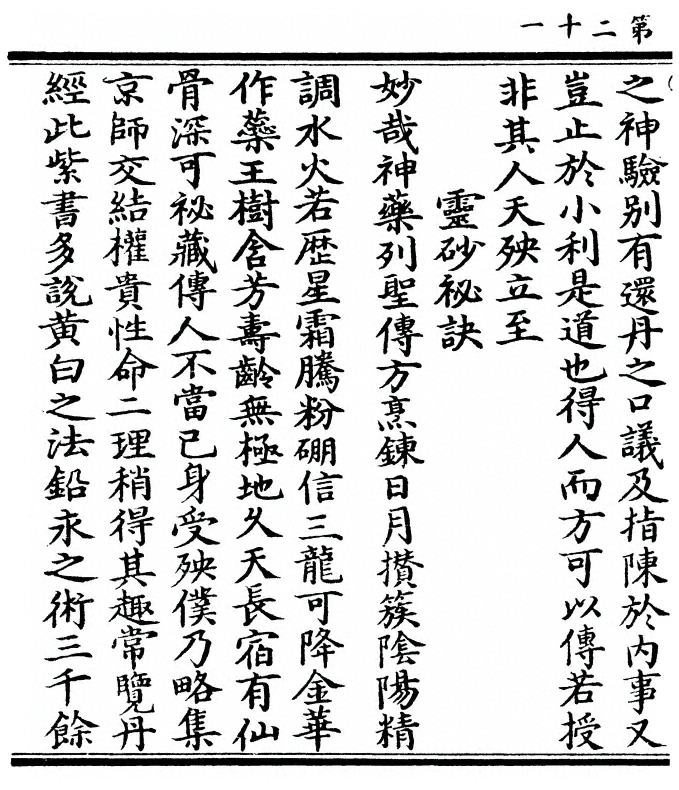 第二十一
之神驗别有還丹之口議及指陳於内事又
豈止於小利是道也得人而方可以傳若授
非其人天殃立至
靈砂祕訣
妙哉神藥列聖傳方烹鍊日月攅簇陰陽精
調水火若歴星霜騰粉硼信三龍可降金華
作藥王樹含芳壽齡無極地久天長宿有仙
骨深可祕藏傳人不當已身受殃僕乃略集
京師交結權貴性命二理稍得其趣常覽丹
經此紫書多說黄白之法鉛汞之術三千餘